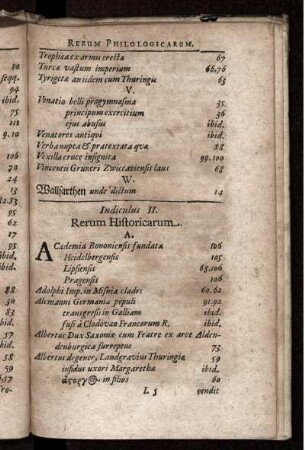 RERUM PHILOLOGICARUM.
Trophæa ex armu erecta 67
Turcæ vastum imperium 66,76
Tyrigetæ an iidem cum Thuringis 63
V.
Venatio belli progymnasma 35.
principum exercitium 36
ejus abusus ibid.
Venatores antiqui ibid.
Verba nupta & prætextata quæ 88
Vexilla cruce insignita 99.100
Vincentii Gruneri Zwiccaviensis laus 68
W.
Wallfarthen unde dictum 14
Indiculus II.
Rerum Historicarum.
A.
ACademia Bononiensis fundata 106
Heidelbergensis 105
Lipsiensis 68,106
Pragensis 106
Adolphi Imp. in Misnia clades 60.62
Alemanni Germaniæ populi 91.92
transgressi in Galliam ibid.
fusi à Clodovæo Francorum R. ibid.
Albertus Dux Saxoniæ cum Fratre ex arce Alden-
denburgica surreptus 73
Albertus degener, Landgravius Thuringiæ 59
infidus uxori Margarethæ ibid.
ἄςοργος in filios 60
L 5 vendit
80
seqq.
94
ibid.
75
111
9.10
106
70
23
24
93
62
17
95
ibid.
ibid.
93
88
ibid.
58
73
59
57